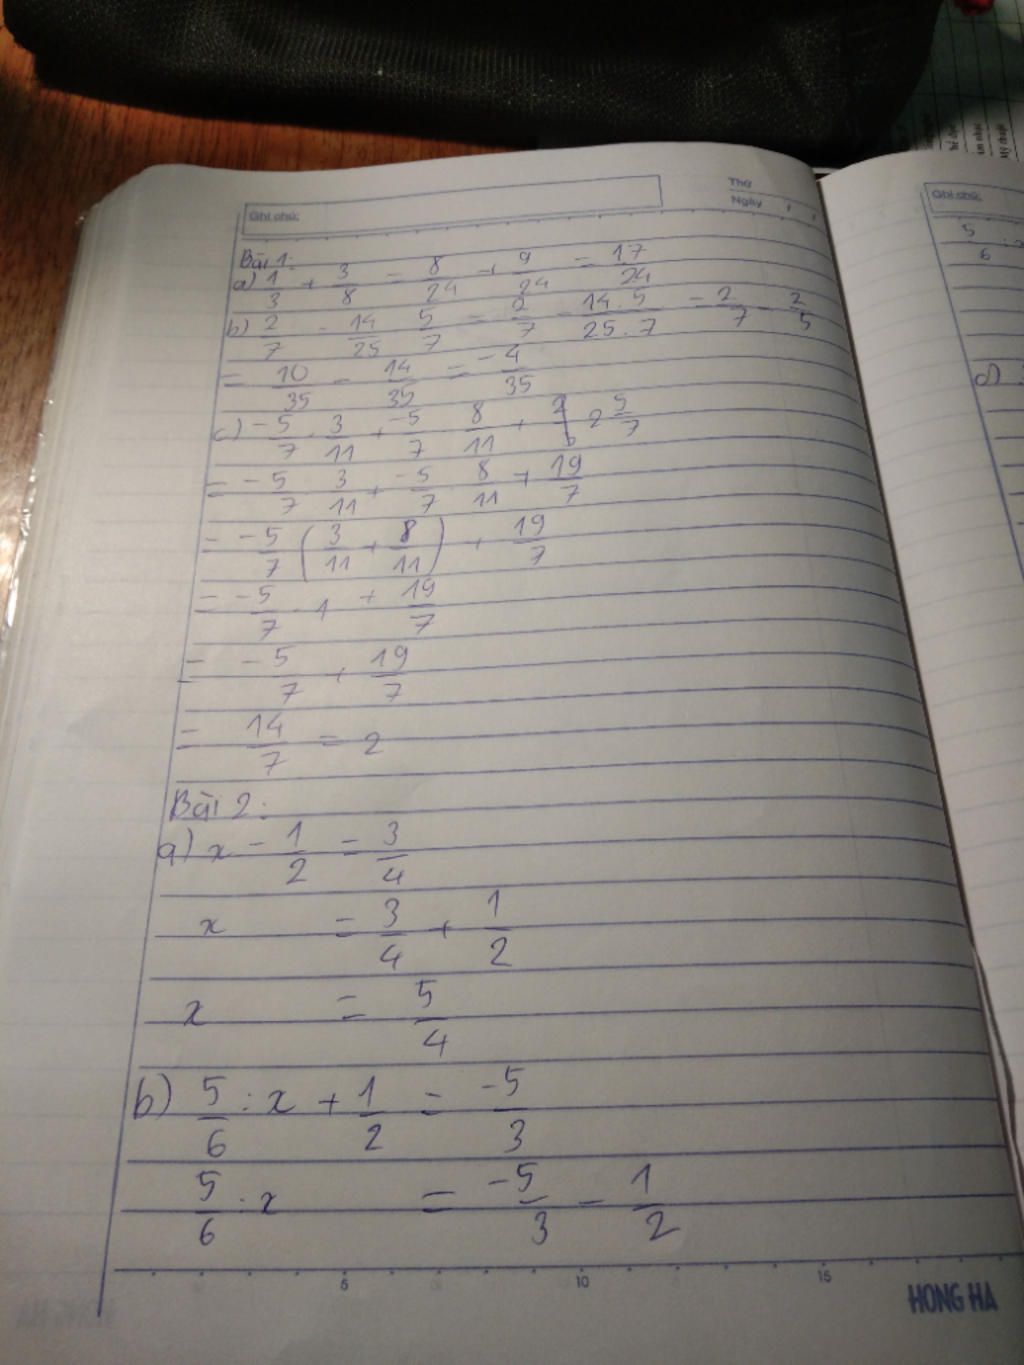 Thể dục
Âm nhạc
Mỹ thuật
Ghi chú:
Thứ
Ngày / /
Bài 1:
a) 1/3 + 3/8 = 8/24 + 9/24 = 17/24
b) 2/7 - 14/25 . 5/7 = 2/7 - 14.5/25.7 = 2/7 - 2/5
= 10/35 - 14/35 = -4/35
c) -5/7 . 3/11 + -5/7 . 8/11 + 2 5/7
= -5/7 . 3/11 + -5/7 . 8/11 + 19/7
= -5/7 (3/11 + 8/11) + 19/7
= -5/7 . 1 + 19/7
= -5/7 + 19/7
= 14/7 = 2
Bài 2:
a) x - 1/2 = 3/4
x = 3/4 + 1/2
x = 5/4
b) 5/6 : x + 1/2 = -5/3
5/6 : x = -5/3 - 1/2
5 10 15
HONG HA
Ghi chú:
5/6 :
d)